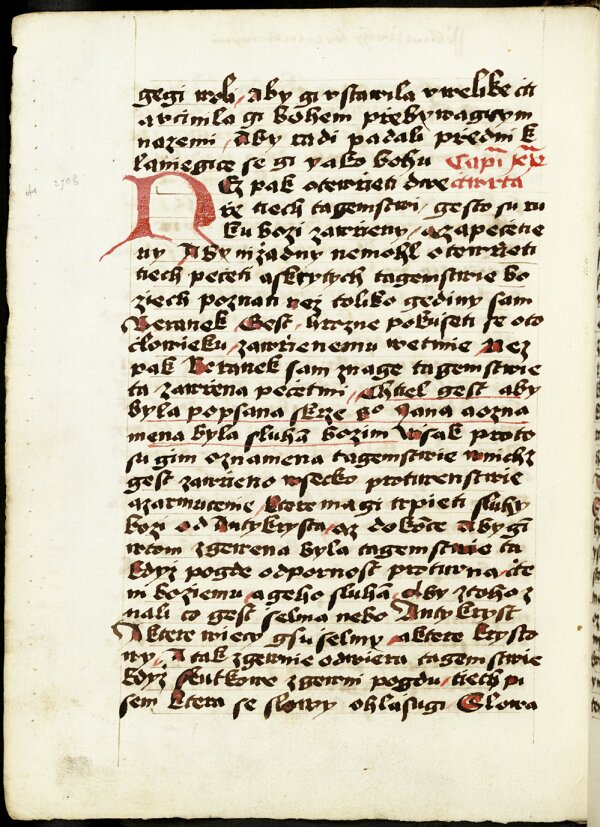 gegi woli, aby gi vstawila v welike cti
a vcinila gi bohem přebywagicym
na zemi, Aby tadi padali před ni k
laniegice se gi yako bohu Capi xx
NEz pak otewřeti dwe čtwrta
ře tiech tagemstwi, gesto su ru
ku bozi zawřeny, a zapečetie
ny Aby nižadny nemohl otewřieti
tiech pečeti a skrytych tagemstwie bo
ziech poznati nez toliko gediny sam
Beranek Gest, hrozne pokuseti se oto
człowieku, zawřenemu wetmie Nez
pak Beranek sam znage tagemstwie
ta zawřena pečetmi, Chtiel gest aby
byla popsana skrze so Jana a ozna
mena byla sluham bozim Wsak proto
su gim oznamena tagemstwie w nichz
gest zawřeno wsecko protiwenstwie
a zarmucenie, ktere magi trpieti sluhy
bozi od Antykrysta, az do konce Aby gim
w tom zgewena byla tagemstwie ta
kdyz pogde odpornost protiwna, cte
ni boziemu, a geho sluham, aby z toho z
nali co gest selma nebo Antykryst
A ktere wiecy gsu selmy, a ktere krysto
wy, A tak zgewnie odwiera tagemstwie
kdyz skutkowe zgewni pogdu, tiech pi
sem ktera se slowy ohlasugi Slowa